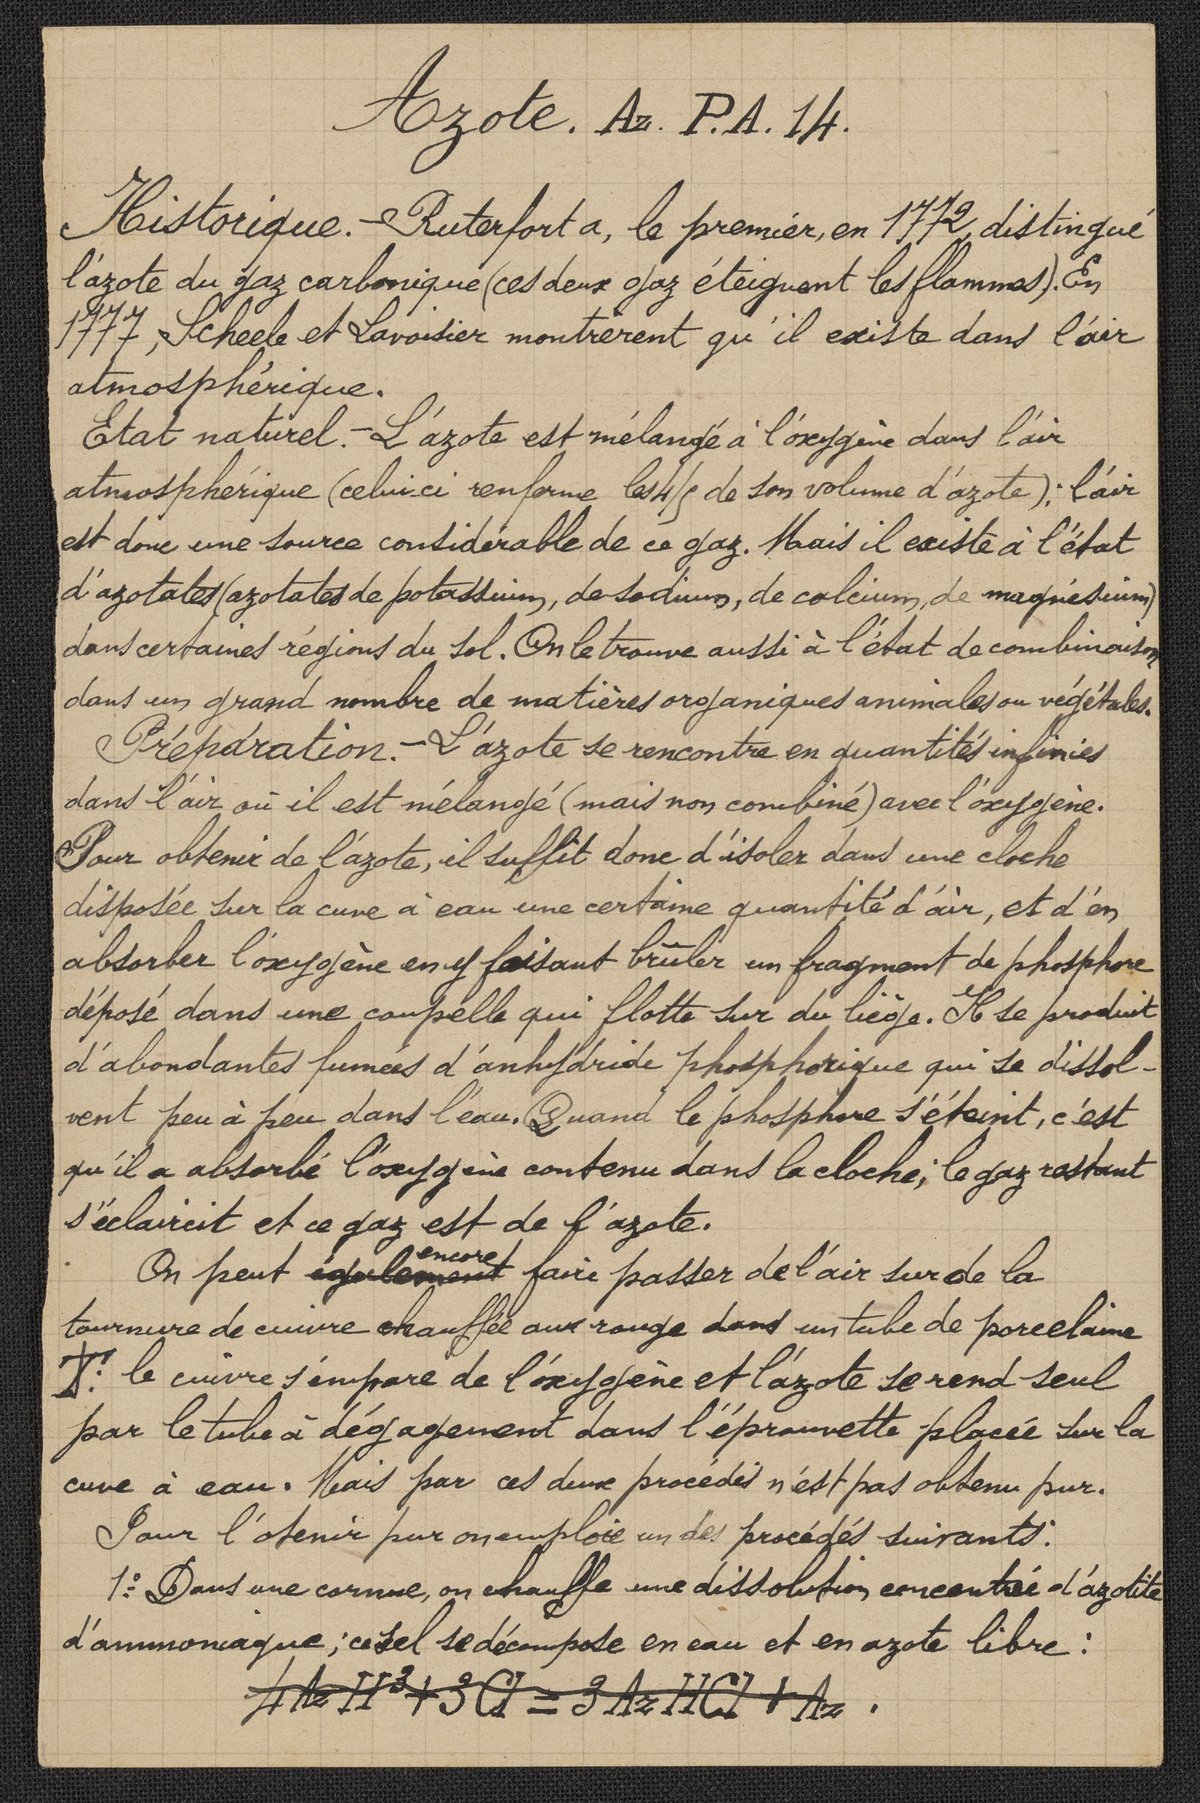 Azote. Az. P.A. 14.
Historique. - Ruterfort a, le premier, en 1772, distingué
l'azote du gaz carbonique (ces deux gaz éteignent les flammes). En
1777, Scheele et Lavoisier montrèrent qu'il existe dans l'air
atmosphérique.
Etat naturel. - L'azote est mélangé à l'oxygène dans l'air
atmosphérique (celui-ci renferme les 4/5 de son volume d'azote); l'air
est donc une source considérable de ce gaz. Mais il existe à l'état
d'azotates (azotates de potassium, de sodium, de calcium, de magnésium)
dans certaines régions du sol. On le trouve aussi à l'état de combinaison
dans un grand nombre de matières organiques animales ou végétales.
Préparation. - L'azote se rencontre en quantités infinies
dans l'air où il est mélangé (mais non combiné) avec l'oxygène.
Pour obtenir de l'azote, il suffit donc d'isoler dans une cloche
disposée sur la cuve à eau une certaine quantité d'air, et d'en
absorber l'oxygène en y faisant brûler un fragment de phosphore
déposé dans une coupelle qui flotte sur du liège. Il se produit
d'abondantes fumées d'anhydride phosphorique qui se dissol-
vent peu à peu dans l'eau. Quand le phosphore s'éteint, c'est
qu'il a absorbé l'oxygène contenu dans la cloche; le gaz restant
s'éclaircit et ce gaz est de l'azote.
On peut également encore faire passer de l'air sur de la
tournure de cuivre chauffée aux rouge dans un tube de porcelaine
T: le cuivre s'empare de l'oxygène et l'azote se rend seul
par le tube à dégagement dans l'éprouvette placée sur la
cuve à eau. Mais par ces deux procédés n'est pas obtenu pur.
Pour l'otenir pur on emploie un des procédés suivants:
1º. Dans une cornue, on chauffe une dissolution concentrée d'azotite
d'ammoniaque; ce sel se décompose en eau et en azote libre:
4 Az H³ + 3 Cl = 3 Az H Cl + Az.